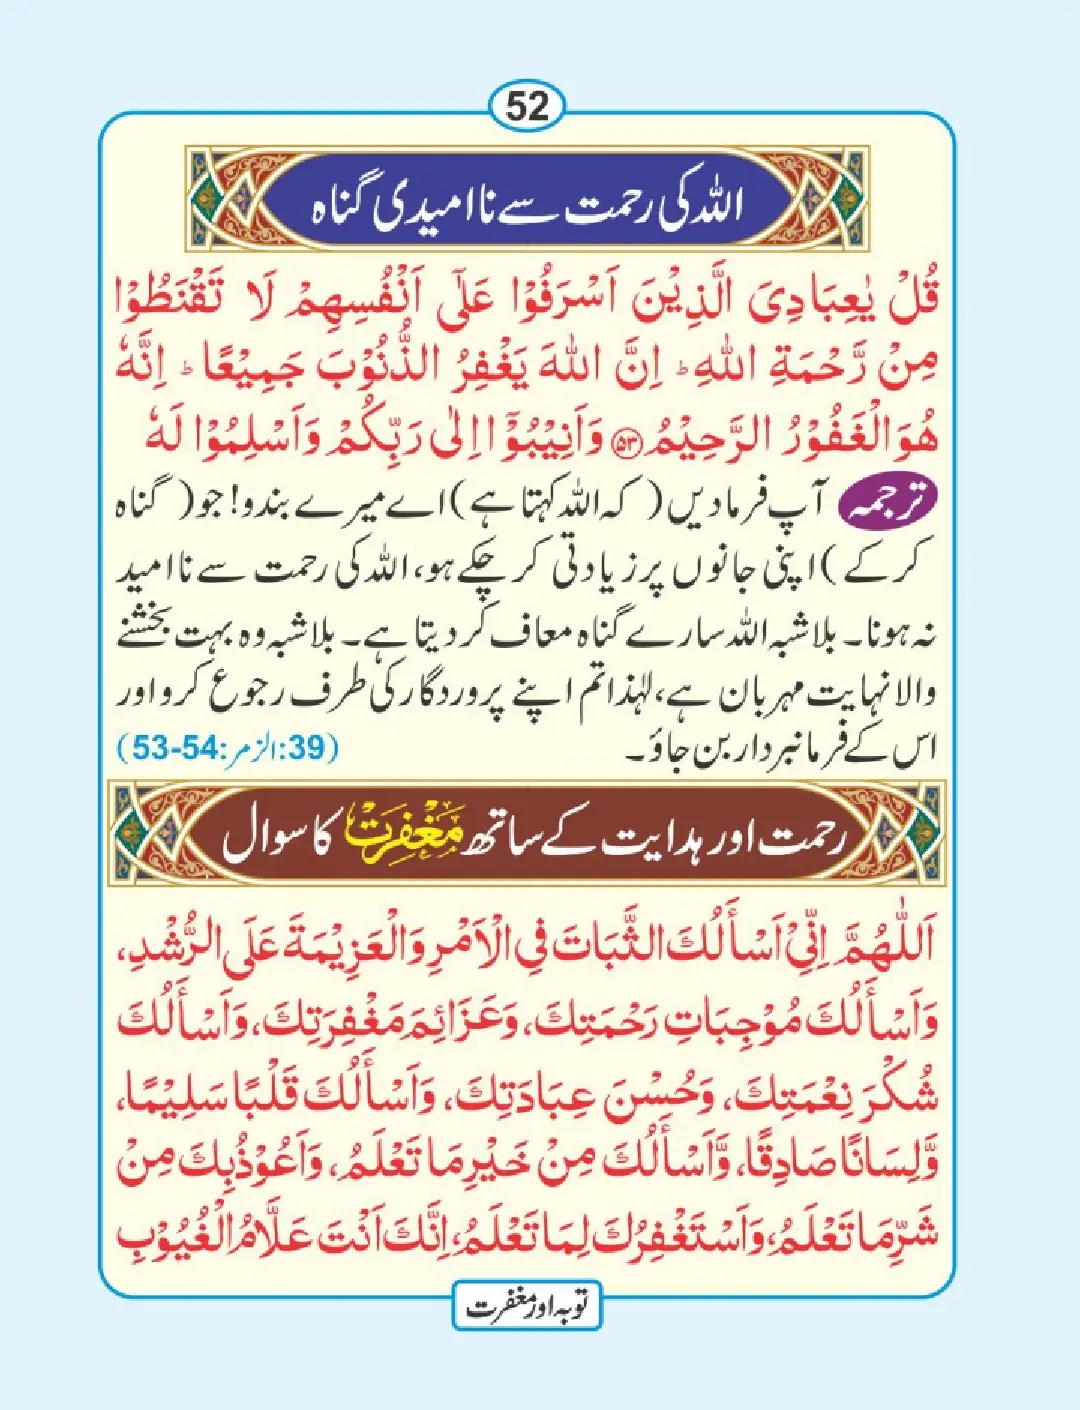 52
اللہ کی رحمت سے ناامیدی گناہ
قُلْ یٰعِبَادِیَ الَّذِیْنَ اَسْرَفُوْا عَلٰٓی اَنْفُسِهِمْ لَا تَقْنَطُوْا
مِنْ رَّحْمَةِ اللهِ ؕ اِنَّ اللهَ یَغْفِرُ الذُّنُوْبَ جَمِیْعًا ؕ اِنَّهٗ
هُوَ الْغَفُوْرُ الرَّحِیْمُ ﴿۵۳﴾ وَاَنِیْبُوْٓا اِلٰی رَبِّكُمْ وَاَسْلِمُوْا لَهٗ
ترجمہ آپ فرما دیں (کہ اللہ کہتا ہے) اے میرے بندو! جو (گناہ
کرکے) اپنی جانوں پر زیادتی کر چکے ہو، اللہ کی رحمت سے ناامید
نہ ہونا۔ بلاشبہ اللہ سارے گناہ معاف کر دیتا ہے۔ بلاشبہ وہ بہت بخشنے
والا نہایت مہربان ہے، لہٰذا تم اپنے پروردگار کی طرف رجوع کرو اور
اس کے فرمانبردار بن جاؤ۔ (39:الزمر:54-53)
رحمت اور ہدایت کے ساتھ مَغْفِرَتْ کا سوال
اَللّٰهُمَّ اِنِّیْ اَسْأَلُكَ الثَّبَاتَ فِی الْاَمْرِ وَالْعَزِیْمَةَ عَلَی الرُّشْدِ،
وَاَسْأَلُكَ مُوْجِبَاتِ رَحْمَتِكَ، وَعَزَائِمَ مَغْفِرَتِكَ، وَاَسْأَلُكَ
شُكْرَ نِعْمَتِكَ، وَحُسْنَ عِبَادَتِكَ، وَاَسْأَلُكَ قَلْبًا سَلِیْمًا،
وَّلِسَانًا صَادِقًا، وَّاَسْأَلُكَ مِنْ خَیْرِ مَا تَعْلَمُ، وَاَعُوْذُبِكَ مِنْ
شَرِّ مَا تَعْلَمُ، وَاَسْتَغْفِرُكَ لِمَا تَعْلَمُ، اِنَّكَ اَنْتَ عَلَّامُ الْغُیُوْبِ
توبہ اور مغفرت